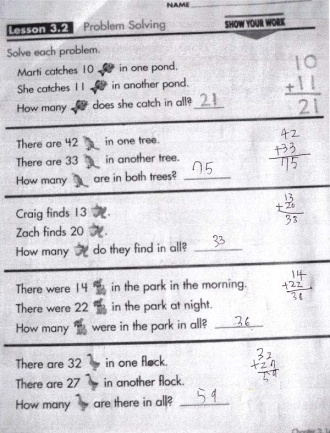 NAME
Lesson 3.2 Problem Solving SHOW YOUR WORK
Solve each problem.
Marti catches 10 in one pond. 10
She catches 11 in another pond. +11
How many does she catch in all? 21 21
There are 42 in one tree. 42
There are 33 in another tree. +33
How many are in both trees? 75 75
Craig finds 13 . 13
Zach finds 20 . +20
How many do they find in all? 33 33
There were 14 in the park in the morning. 14
There were 22 in the park at night. +22
How many were in the park in all? 36 36
There are 32 in one flock. 32
There are 27 in another flock. +27
How many are there in all? 59 59